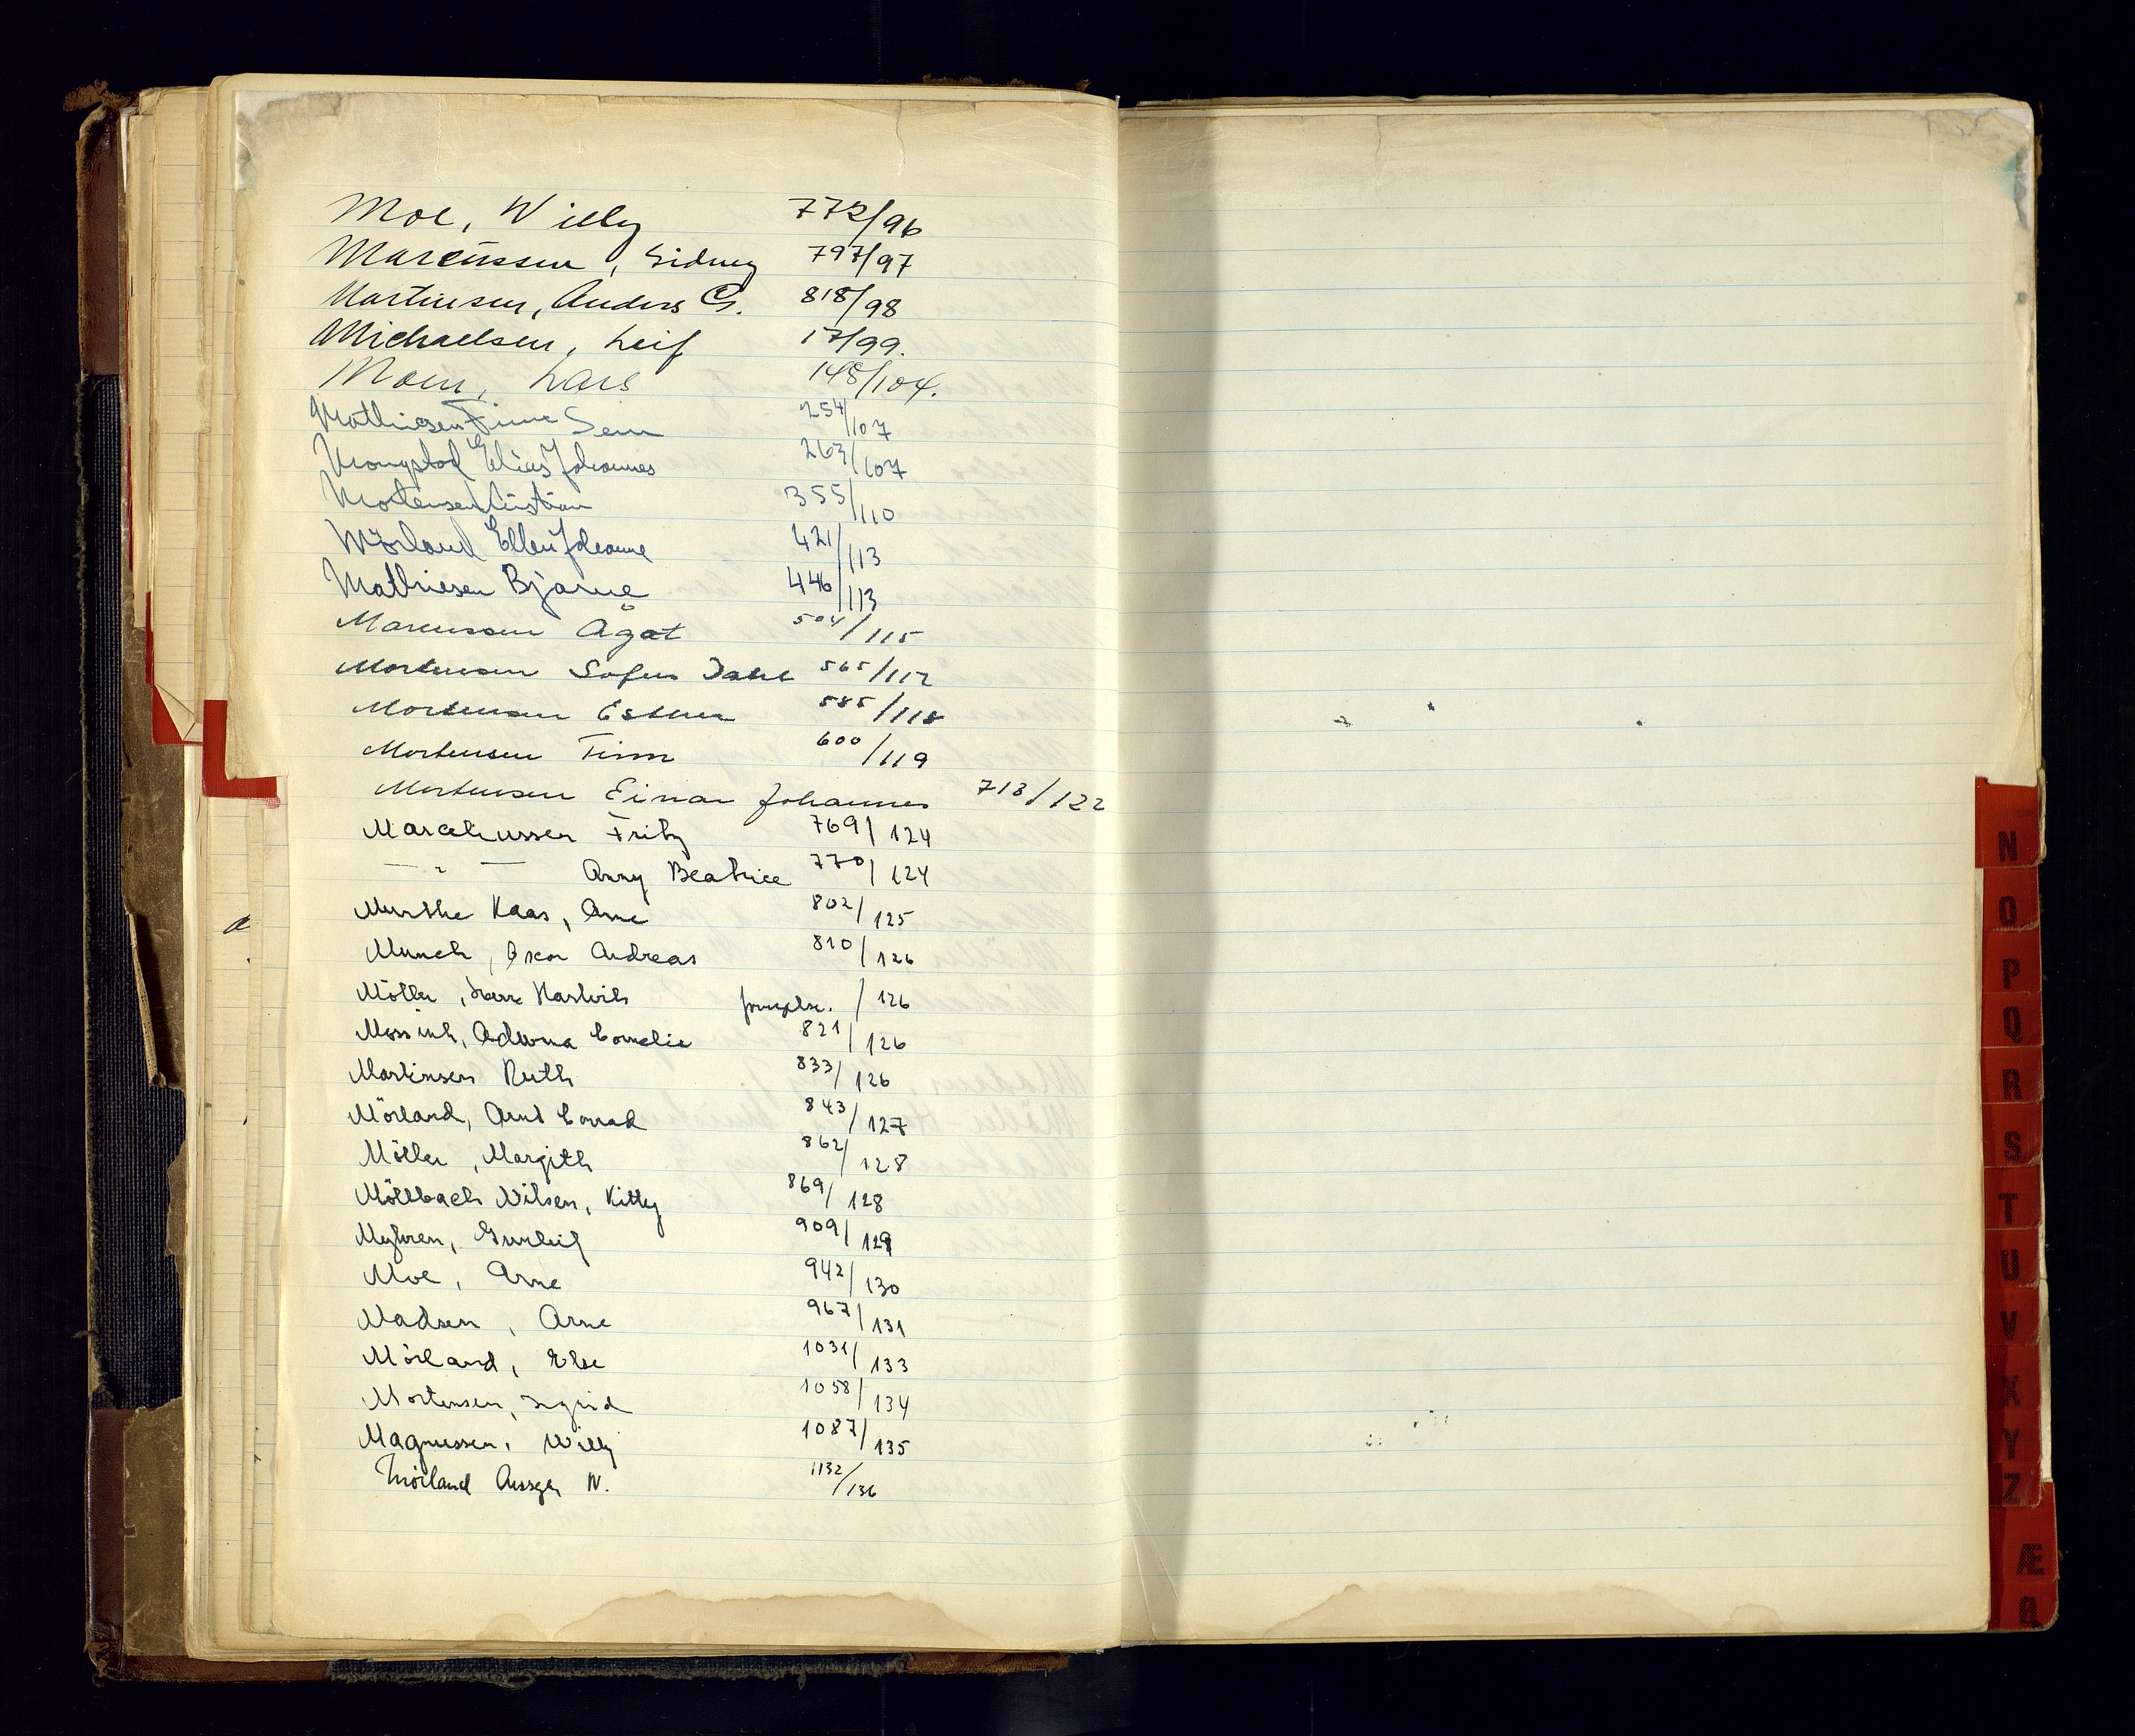 Moe, Willy 772/96
Marcussen, Sidney 797/97
Martinsen, Anders G. 818/98
Michaelsen, Leif 17/99.
Moen, Lars 148/104.
Mathiesen Finn Sem 254/107
Mongstad Elias Johannes 263/107
Mortensen Kristian 355/110
Mörland Ellen Johanne 421/113
Mathiesen Bjarne 446/113
Marcussen Ågot 504/115
Mortensen Sofus 565/117
Mortensen Esther 585/118
Mortensen Finn 600/119
Mortensen Einar Johannes 713/122
Marceliussen Fritz 769/124
— " — Anny Beatrice 770/124
Munthe Kaas, Arne 802/125
Munch, Oscar Andreas 810/126
Möller, Hartvik /126
Adwina Cornelie 821/126
Martinsen Ruth 833/126
Mörland, Arnt Conrad 843/127
Möller, Margith 862/128
Möllbach Nilsen, Kitty 869/128
Myhren, Gunleif 909/129
Moe, Arne 942/130
Madsen, Arne 967/131
Mörland, Else 1031/133
Mortensen, Sigrid 1058/134
Magnussen, Willy 1087/135
Mörland N. 1132/136
a
N
O
P
Q
R
S
T
U
V
X
Y
Z
Æ
Ø